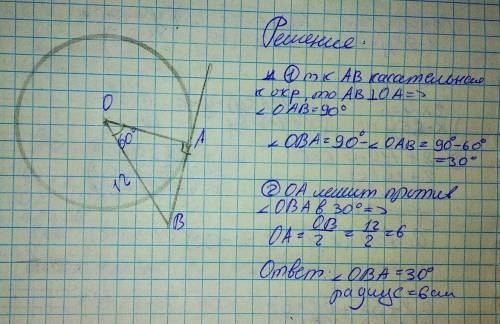 Решение.
① т к AB касательная
к окр, то AB⊥OA=>
∠OAB=90°
∠OBA=90°-∠OAB= 90°-60°
=30°
② OA лежит против
∠OBA в 30°=>
OA= OB/2 = 12/2 =6
Ответ: ∠OBA=30°
радиус=6см
O
60°
A
12
B